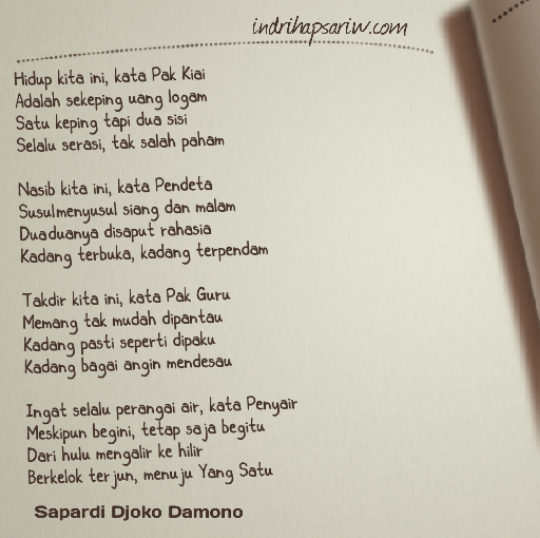 indrihapsariw.com
Hidup kita ini, kata Pak Kiai
Adalah sekeping uang logam
Satu keping tapi dua sisi
Selalu serasi, tak salah paham
Nasib kita ini, kata Pendeta
Susulmenyusul siang dan malam
Duaduanya disaput rahasia
Kadang terbuka, kadang terpendam
Takdir kita ini, kata Pak Guru
Memang tak mudah dipantau
Kadang pasti seperti dipaku
Kadang bagai angin mendesau
Ingat selalu perangai air, kata Penyair
Meskipun begini, tetap saja begitu
Dari hulu mengalir ke hilir
Berkelok terjun, menuju Yang Satu
Sapardi Djoko Damono